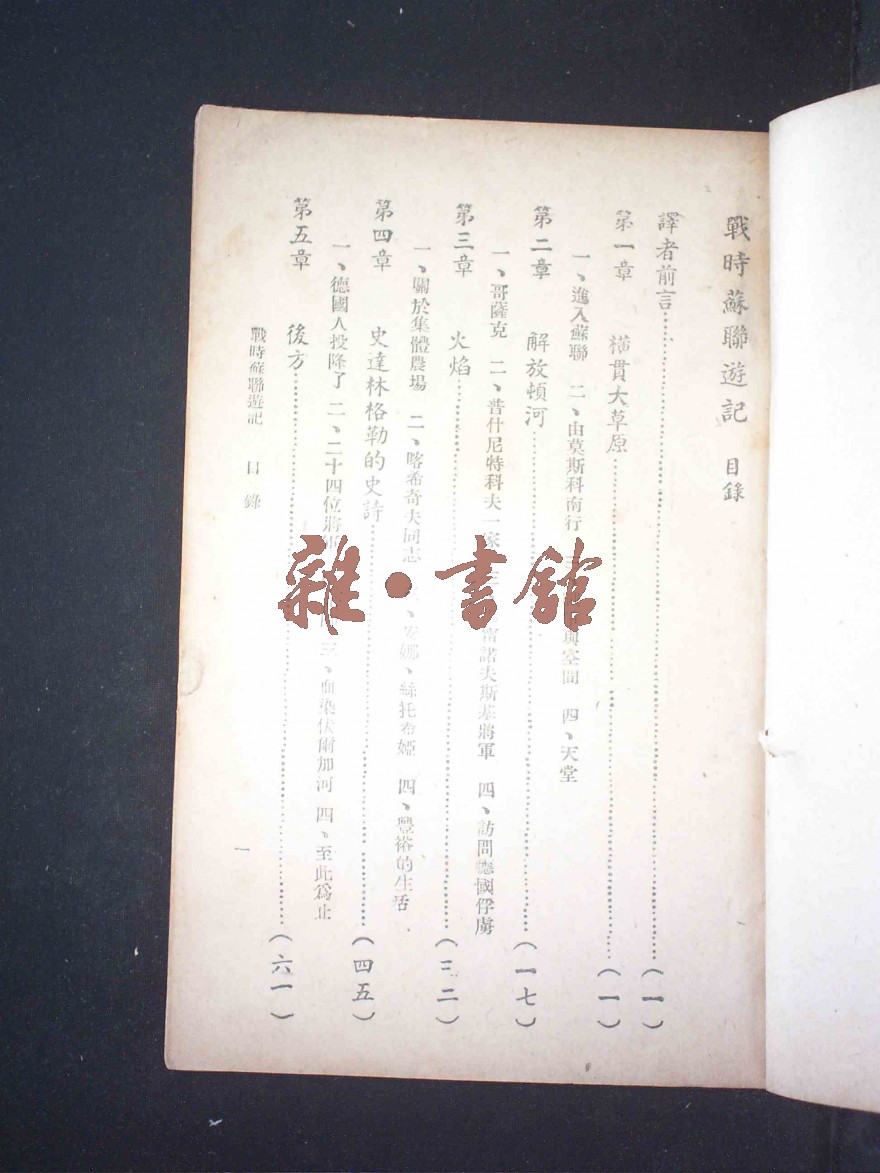 戰時蘇聯遊記 目錄
譯者前言……（一）
第一章 橫貫大草原……（一）
一、進入蘇聯 二、由莫斯科南行 與空間 四、天堂
第二章 解放頓河……（一七）
一、哥薩克 二、普什尼特科夫一家 諾夫斯基將軍 四、訪問德國俘虜
第三章 火焰……（三二）
一、關於集體農場 二、喀希奇夫同志 、安娜、絲托布婭 四、豐裕的生活
第四章 史達林格勒的史詩……（四五）
一、德國人投降了 二、二十四位將軍 三、血染伏爾加河 四、至此爲止
第五章 後方……（六一）
戰時蘇聯遊記 目錄
一
雜·書館